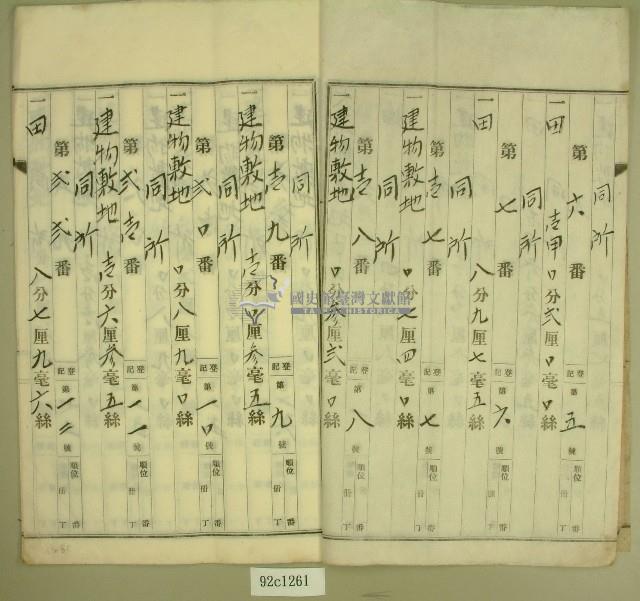 同所
第六番 登記第五號 順位番 冊丁
一田 壱甲口分弐厘口毫口絲
同所
第七番 登記第六號 順位番 冊丁
一田 八分九厘七毫五絲
同所
第壱七番 登記第七號 順位番 冊丁
一建物敷地 口分七厘四毫口絲
同所
第壱八番 登記第八號 順位番 冊丁
一建物敷地 口分参厘弐毫口絲
同所
第壱九番 登記第九號 順位番 冊丁
一建物敷地 壱分口厘参毫五絲
同所
第弐口番 登記第一口號 順位番 冊丁
一建物敷地 口分八厘九毫口絲
同所
第弐壱番 登記第一一號 順位番 冊丁
一建物敷地 壱分六厘参毫五絲
同所
第弐弐番 登記第一二號 順位番 冊丁
一田 八分七厘九毫六絲
國史館臺灣文獻館
TAIWAN HISTORICA
92c1261